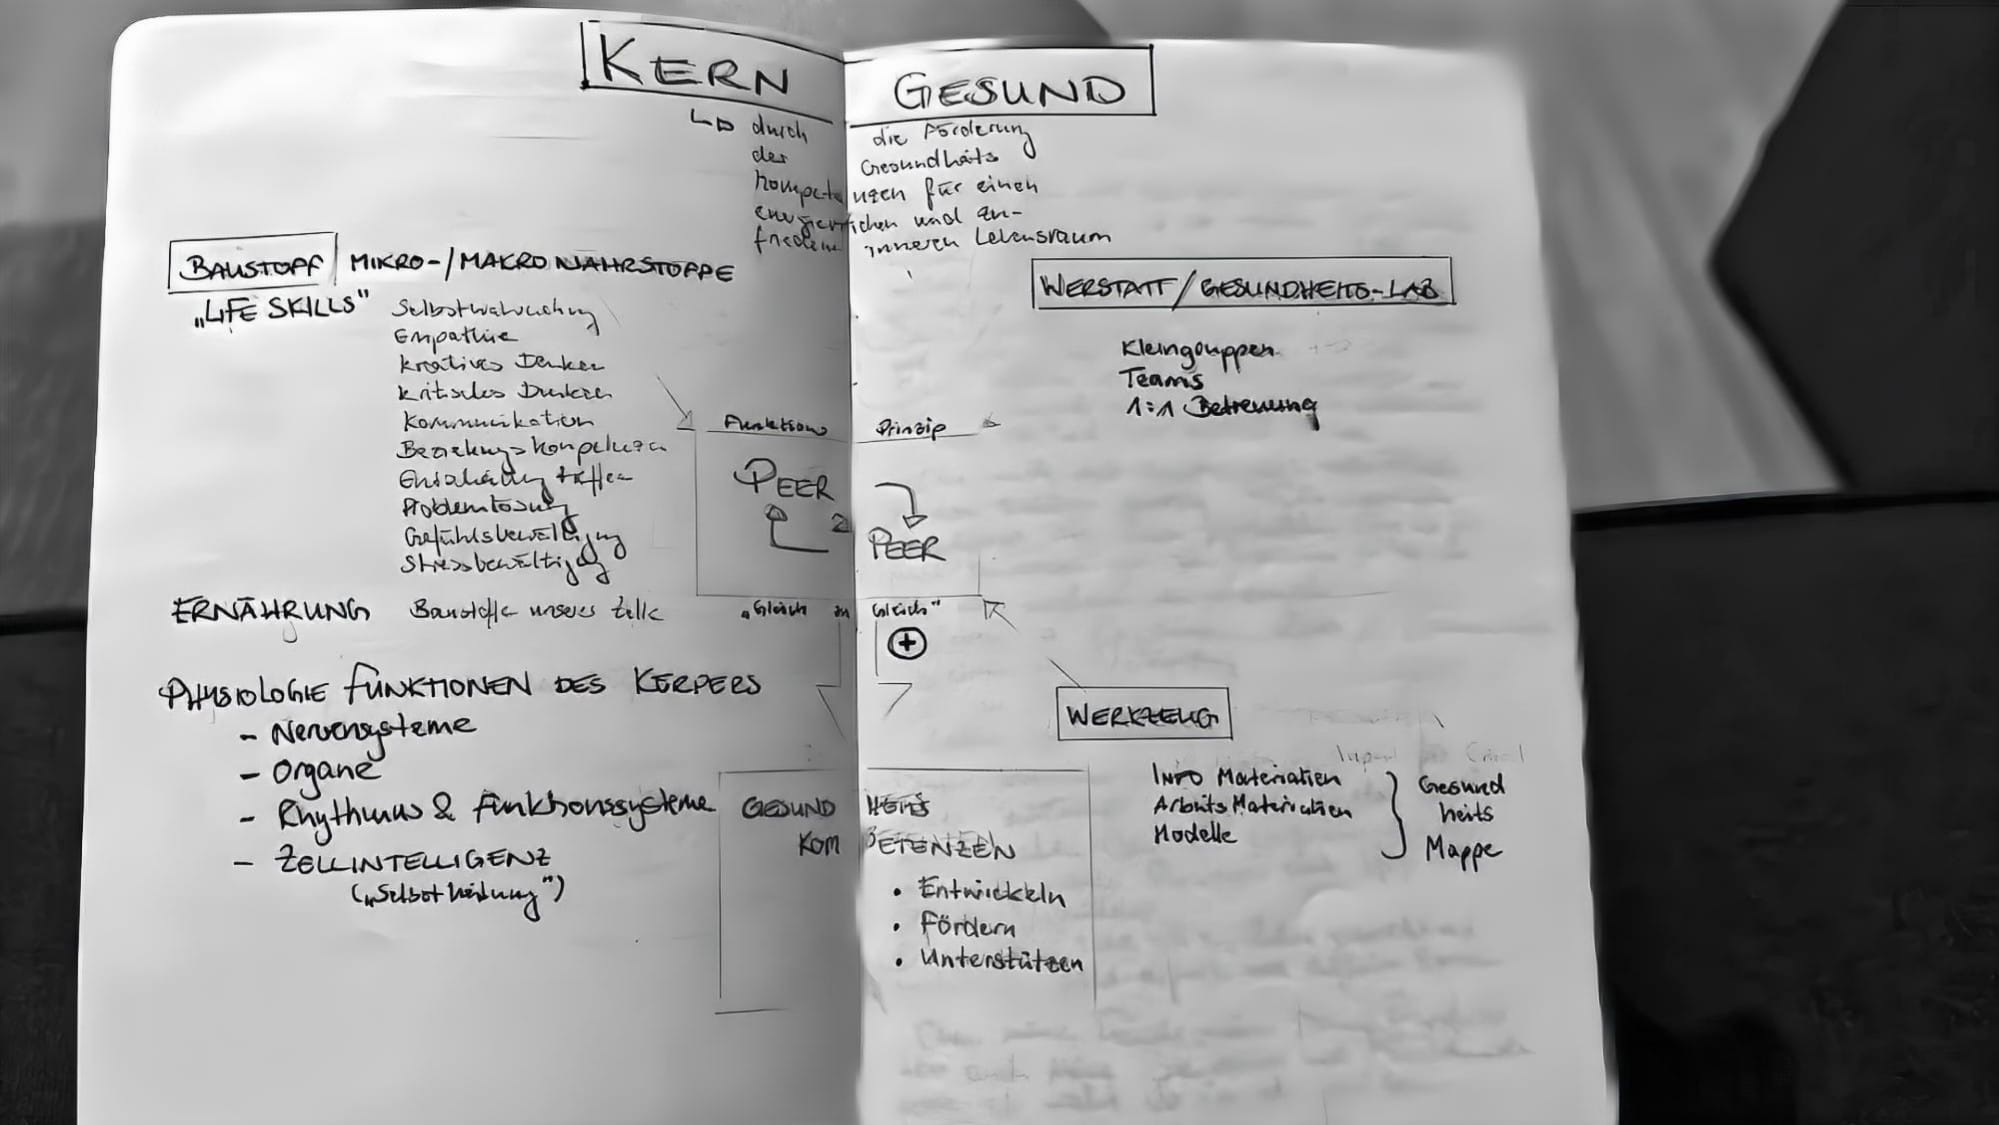 KERN GESUND
durch die Förderung
der Gesundheits
kompetenzen für einen
energiereichen und zu-
friedenen inneren Lebensraum
BAUSTOFF / MIKRO-/MAKRONÄHRSTOFFE
„LIFE SKILLS"
Selbstwahrnehmung
Empathie
kreatives Denken
kritisches Denken
Kommunikation
Beziehungskompetenz
Entscheidung treffen
Problemlösung
Gefühlsbewältigung
Stressbewältigung
ERNÄHRUNG Baustoffe unserer Zelle
PHYSIOLOGIE FUNKTIONEN DES KERPERS
- Nervensysteme
- Organe
- Rhythmus & Funktionssysteme
- ZELLINTELLIGENZ
(„Selbstheilung")
Funktions Prinzip
PEER
2
PEER
„Gleich zu Gleich"
+
GESUND HEITS
KOM PETENZEN
• Entwickeln
• Fördern
• Unterstützen
WERSTATT/GESUNDHEITS-LAB
Kleingruppen
Teams
1:1 Betreuung
WERKZEUG
INFO Materialien
Arbeits Materialien
Modelle
Gesund
heits
Mappe